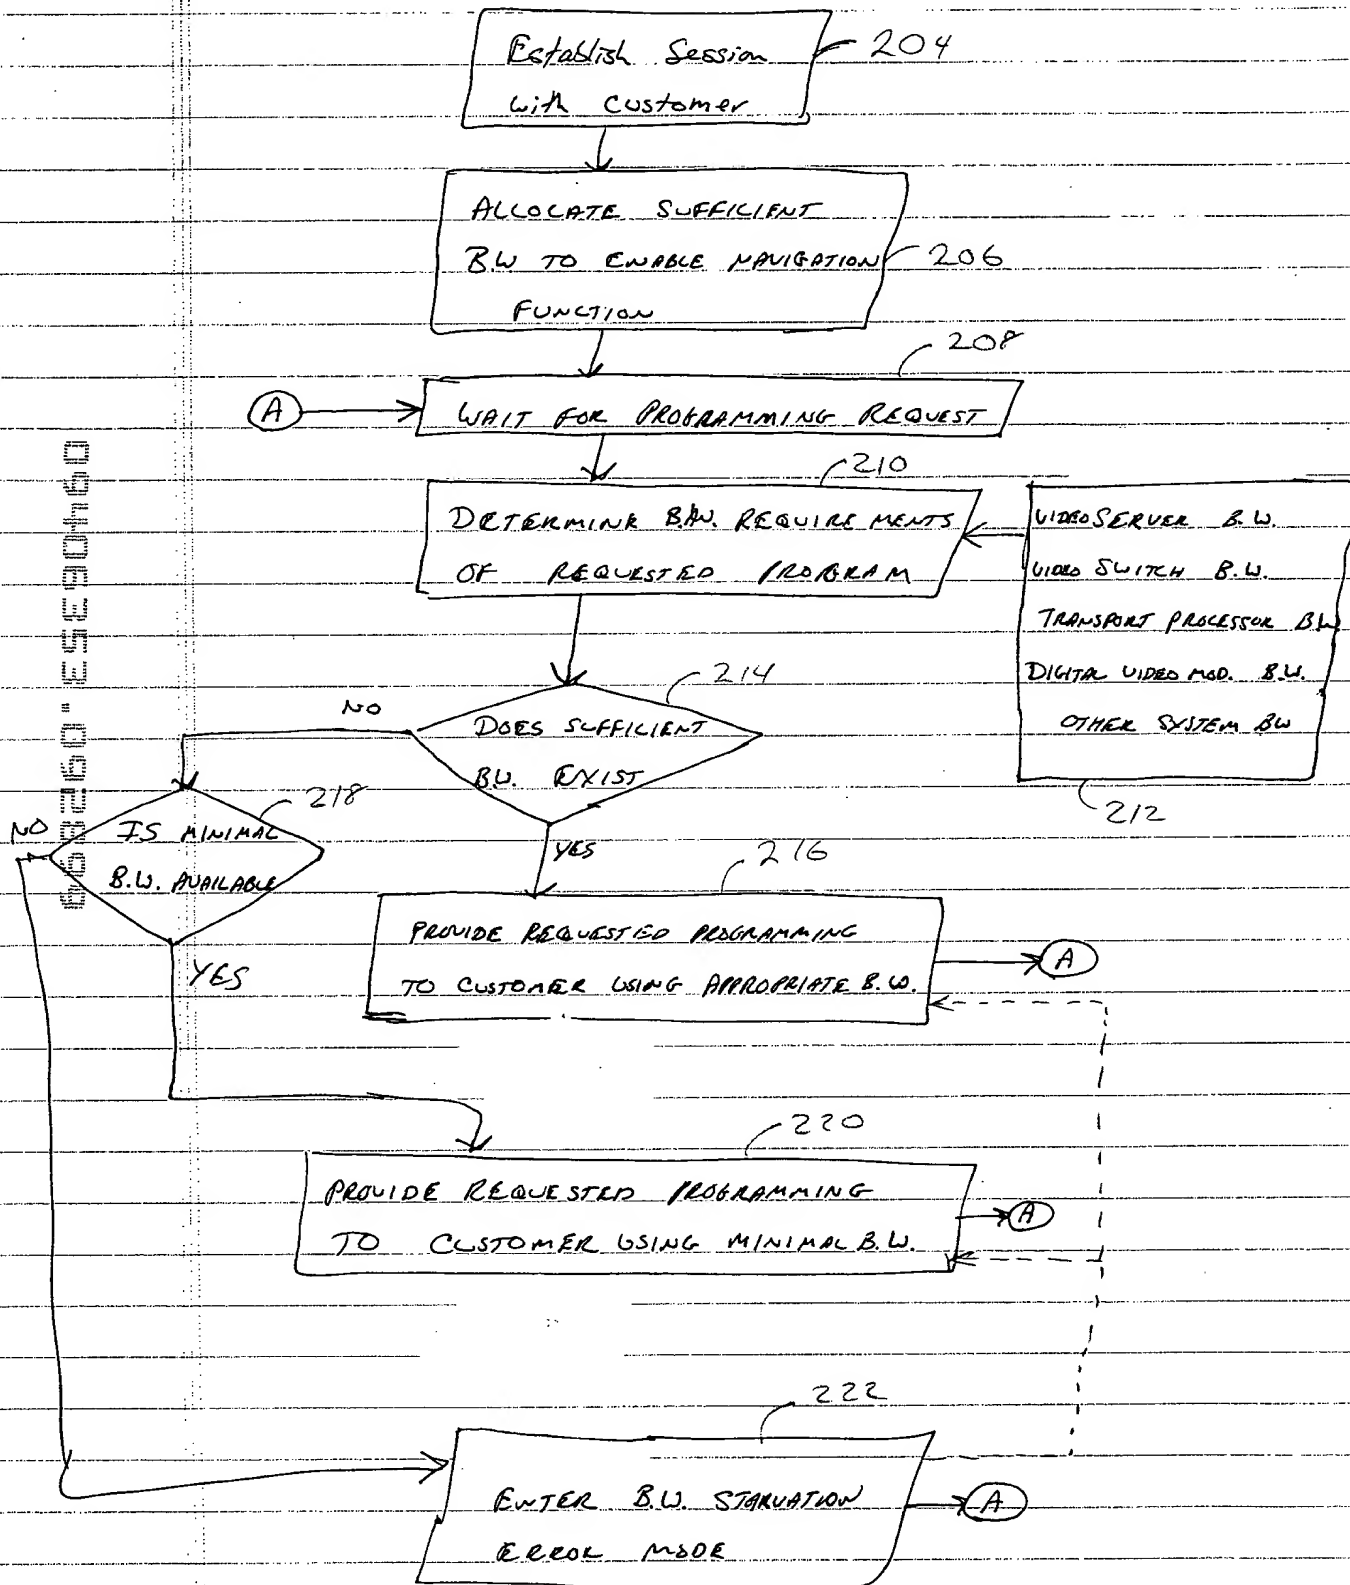 Establish Session
with Customer
204
ALLOCATE SUFFICIENT
B.W TO ENABLE NAVIGATION
FUNCTION
206
208
A
WAIT FOR PROGRAMMING REQUEST
210
DETERMINE B.W. REQUIREMENTS
OF REQUESTED PROGRAM
VIDEO SERVER B.W.
VIDEO SWITCH B.W.
TRANSPORT PROCESSOR BW
DIGITAL VIDEO MOD. B.W.
OTHER SYSTEM BW
212
214
NO
DOES SUFFICIENT
B.W. EXIST
218
NO
IS MINIMAL
B.W. AVAILABLE
YES
216
YES
PROVIDE REQUESTED PROGRAMMING
TO CUSTOMER USING APPROPRIATE B.W.
A
220
PROVIDE REQUESTED PROGRAMMING
TO CUSTOMER USING MINIMAL B.W.
A
222
ENTER B.W. STARVATION
ERROR MODE
A